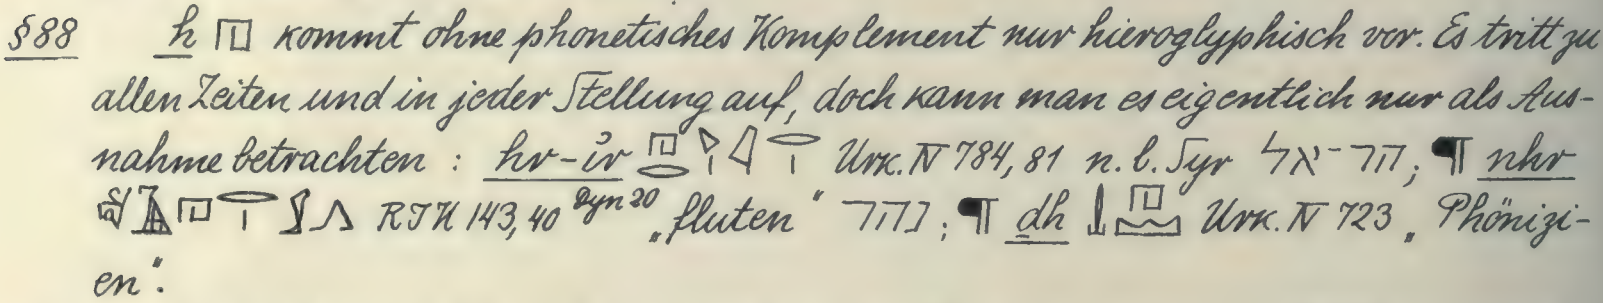 §88 h 𓉔 kommt ohne phonetisches Komplement nur hieroglyphisch vor. Es tritt zu
allen Zeiten und in jeder Stellung auf, doch kann man es eigentlich nur als Aus-
nahme betrachten : hr-ỉr Urk. IV 784, 81 n. b. Syr הר־אל; ¶ nhr
RIK 143,40 Dyn 20 „fluten“ נהר; ¶ ḏh Urk. IV 723 „Phönizi-
en“.